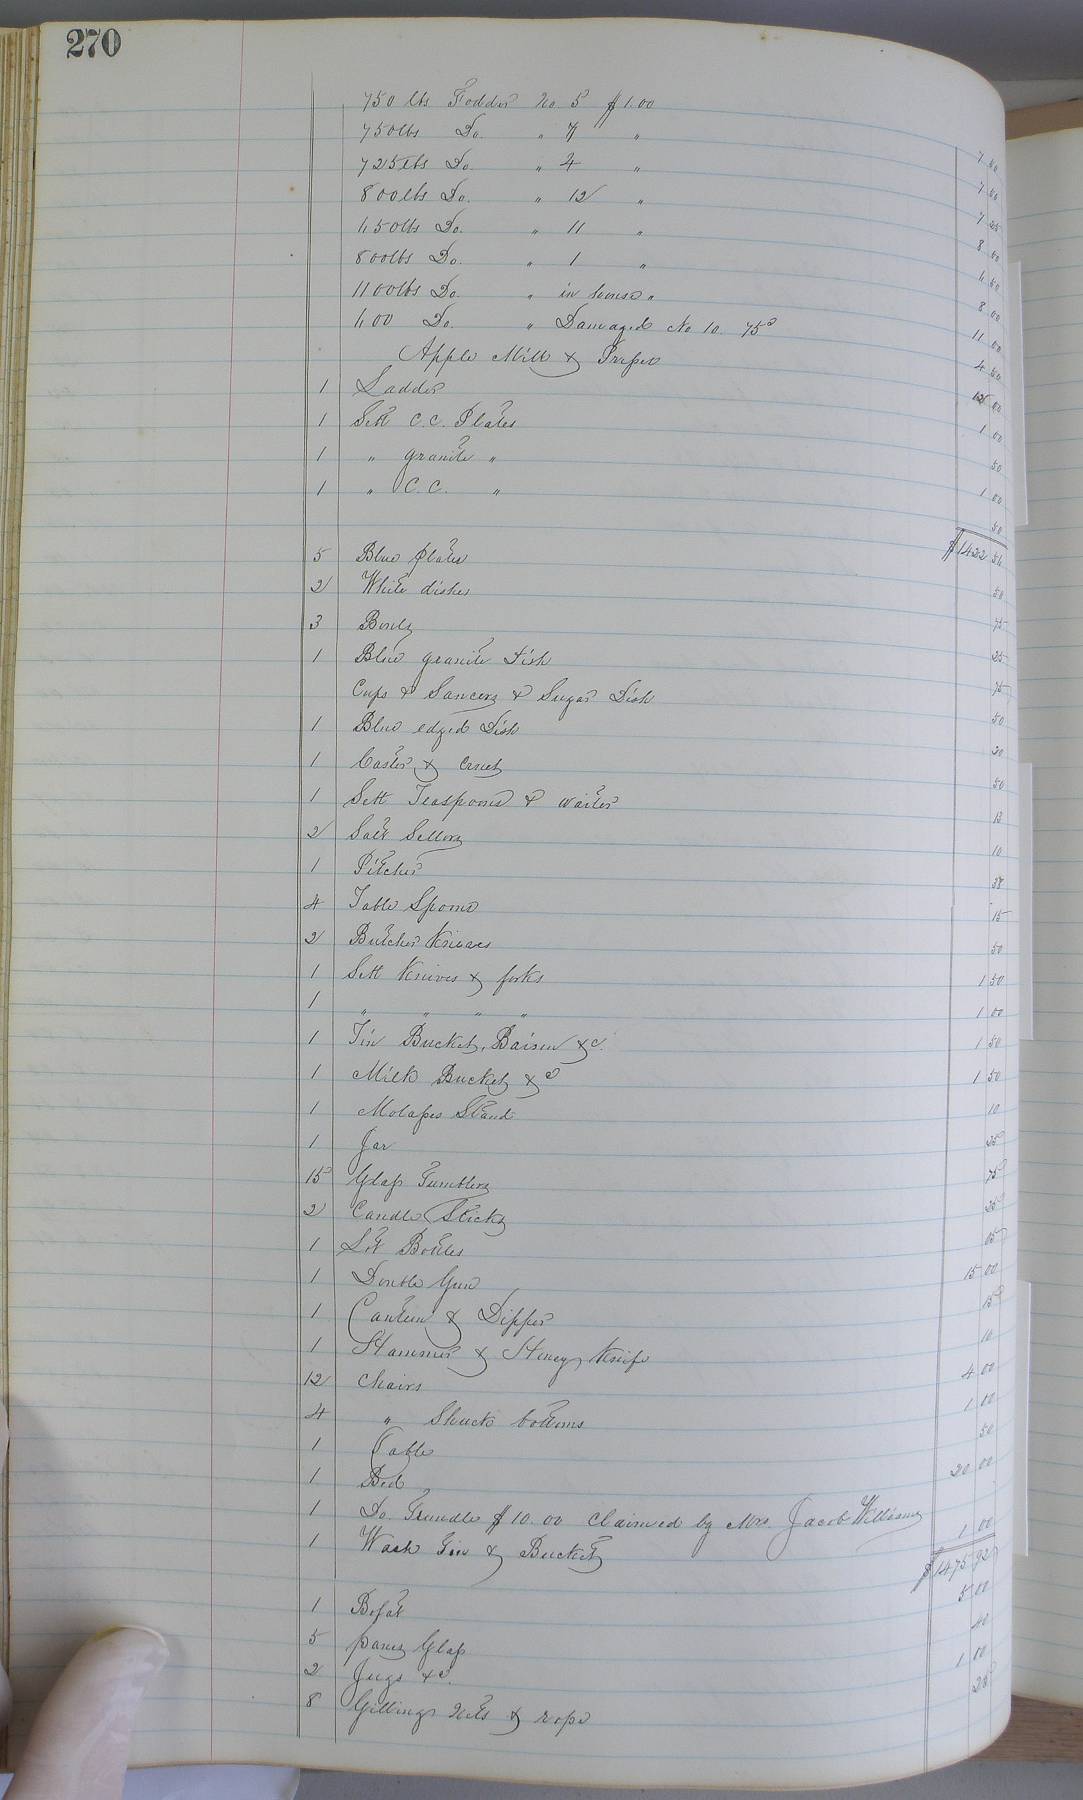 270
750 lbs Fodder No. 5 $1.00 7 50
750lbs Do. " 7 " 7 50
725lbs Do. " 4 " 7 25
800lbs Do. " 12 " 8 00
650lbs Do. " 11 " 6 50
800lbs Do. " 1 " 8 00
1100lbs Do. " in house " 11 00
600 Do. " Damaged No 10. 75 4 50
Apple Mill & Press 12 00
1 Ladder 1 00
1 Sett C.C. Plates 50
1 " granite " 1 00
1 " C.C. " 50
$1422 56
5 Blue plates 50
2 White dishes 75
3 Bowls 25
1 Blue granite Dish 75
Cups & Saucers & Sugar Dish 50
1 Blue edged Dish 20
1 Caster & Cruets 50
1 Sett Teaspoons & waiter 13
2 Salt Sellers 10
1 Pitcher 38
4 Table Spoons 15
2 Butcher Knives 50
1 Sett Knives & forks 1 50
1 " " " " 1 00
1 Tin Bucket, Baisen &c. 1 50
1 Milk Buckets &c 1 50
1 Molasses Stand 10
1 Jar 25
15 Glass Tumblers 75
2 Candle Sticks 25
1 Lot Bottles 05
1 Double Gun 15 00
1 Canteen & Dipper 15
1 Hammer & Knife 10
12 Chairs 4 00
4 " Shuck bottoms 1 00
1 Table 50
1 Bed 20 00
1 Do. Trundle $10.00 Claimed by Mrs. Jacob Williams
1 Wash Tin & Buckets 1 00
$1475 92
1 Bofat 5 00
5 panes Glass 40
2 Jugs &c. 1 00
8 Gillings Nets & rope 25